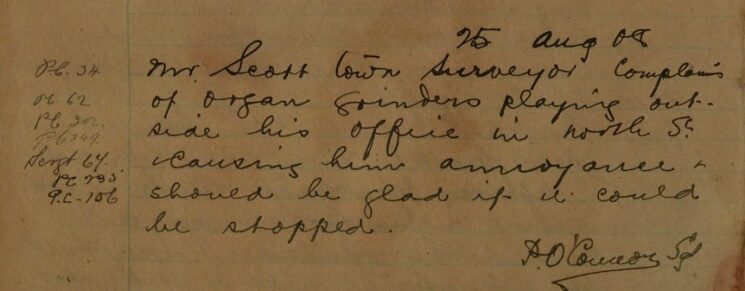 25 Aug 08
Mr. Scott Town Surveyor Complains
of organ grinders playing out-
side his office in North St
causing him annoyance &
should be glad if it could
be stopped.
P. O'Connor Sgt
Pc. 34
Pc 62
Pc 202.
Pc 249
Sergt 64.
Pc 285
P.C - 106